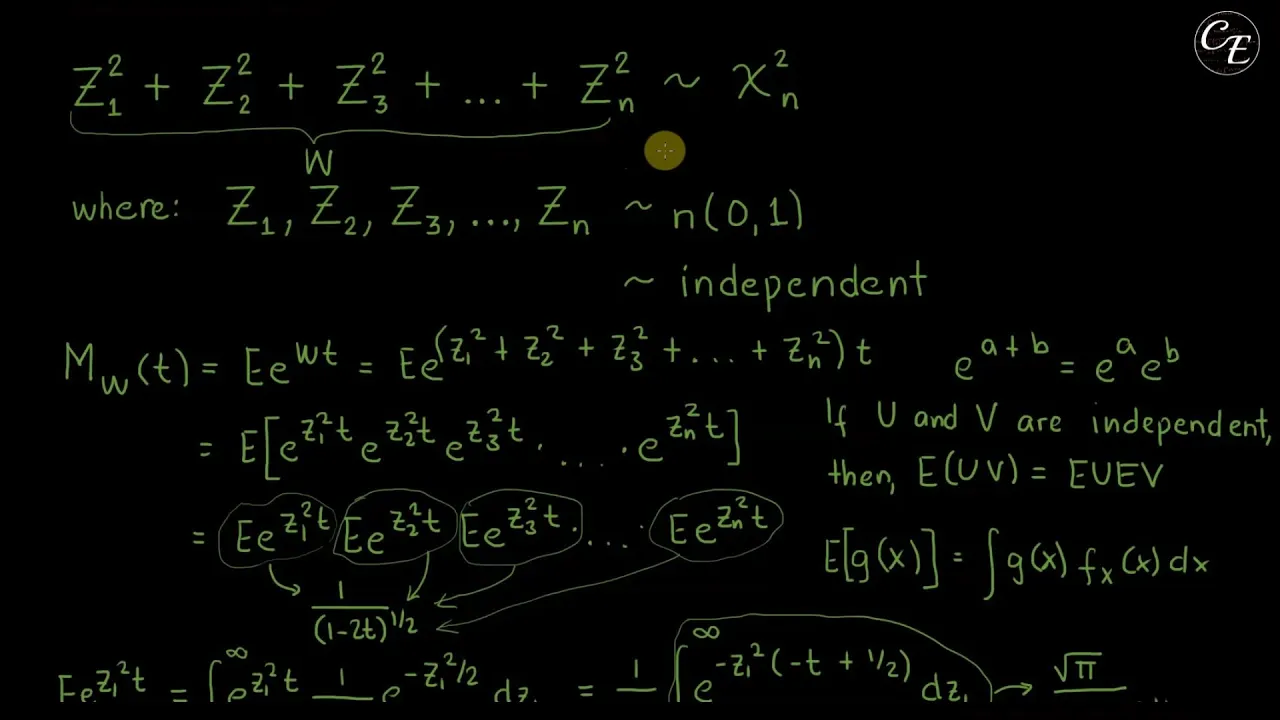 CE
Z₁² + Z₂² + Z₃² + ... + Zₙ² ~ χ²ₙ
W
where: Z₁, Z₂, Z₃, ..., Zₙ ~ n(0,1)
~ independent
M_W(t) = Ee^{Wt} = Ee^{(Z₁² + Z₂² + Z₃² + ... + Zₙ²)t}
e^{a+b} = e^a e^b
= E[e^{Z₁²t} e^{Z₂²t} e^{Z₃²t} · .... · e^{Zₙ²t}]
If U and V are independent,
then, E(UV) = EUEV
= Ee^{Z₁²t} Ee^{Z₂²t} Ee^{Z₃²t} · .... Ee^{Zₙ²t}
E[g(x)] = ∫g(x) fₓ(x)dx
1/(1-2t)^{1/2}
Ee^{Z₁²t} = ∫^∞ e^{Z₁²t} 1/ e^{-Z₁²/2} dz₁ = 1/ ∫^∞ e^{-Z₁²(-t + 1/2)} dz₁ → √π/